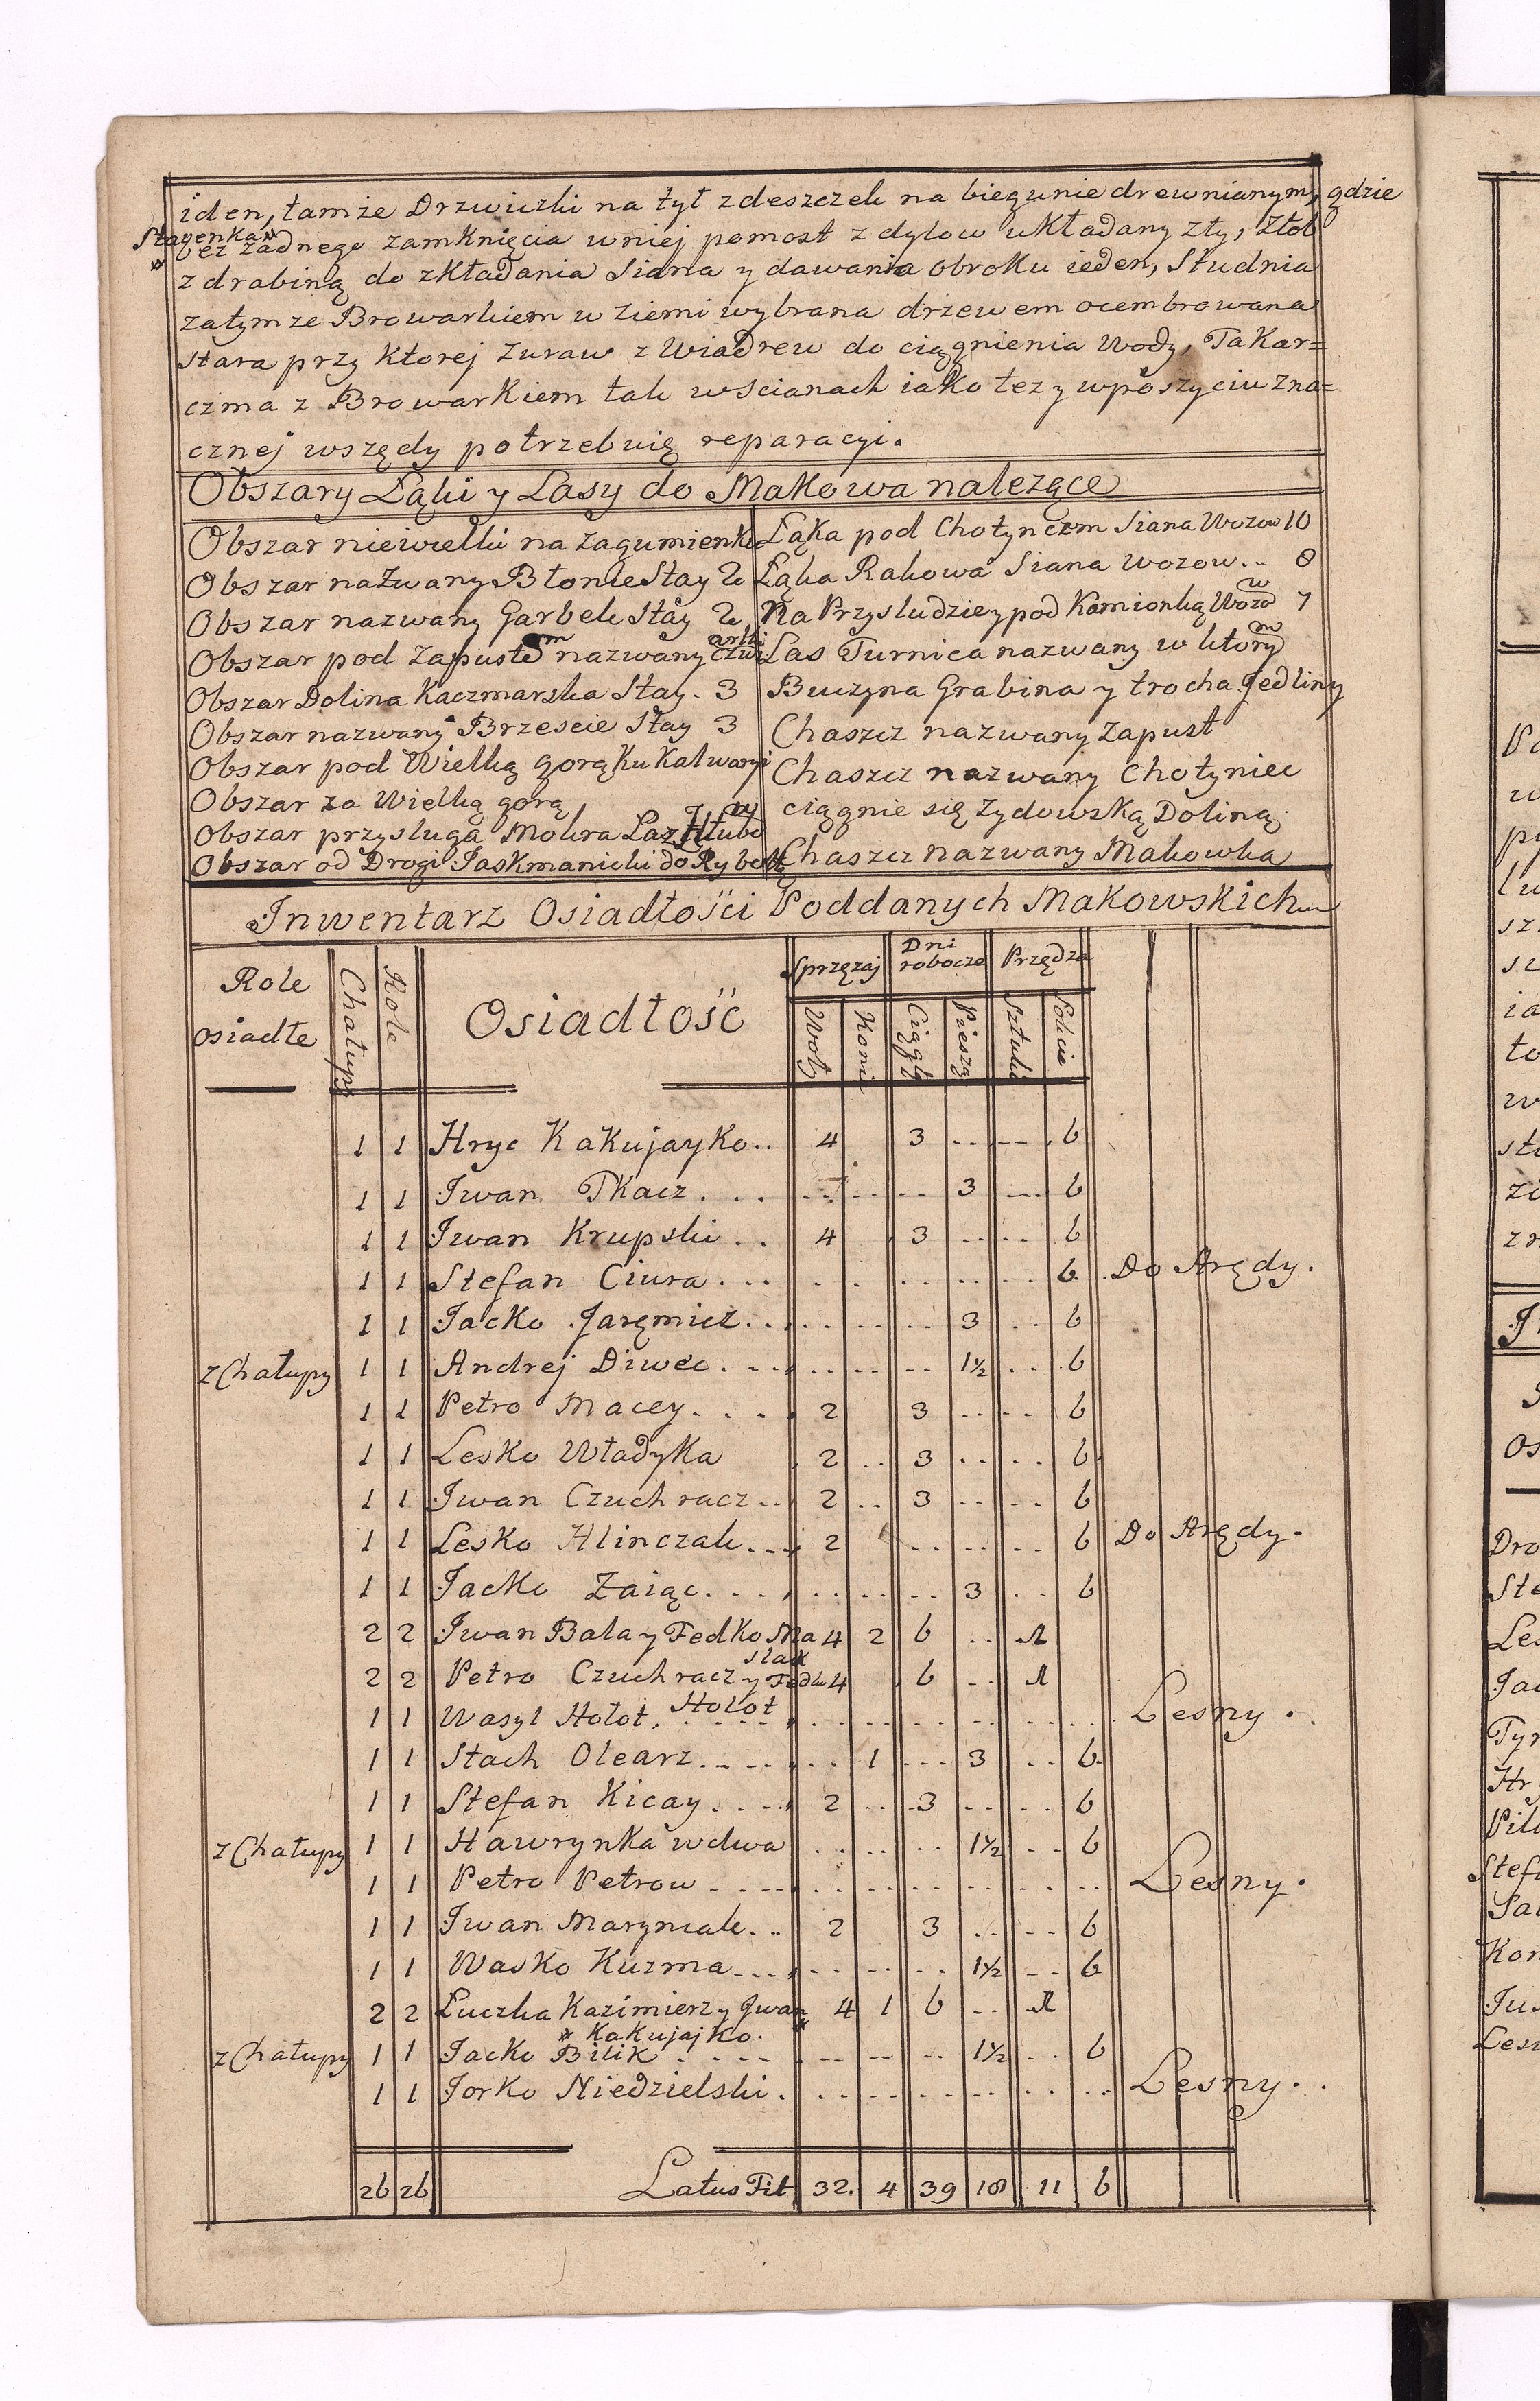 iden, tamże Drzwiczki na tył zdeszczek na biegunie drewnianymy gdzie
Stayenka *
bez żadnego zamknięcia wniej pomost z dylow układany zły, żłob
* z drabiną do zkładania Siana y dawania obroku ieden, Studnia
zatymze Browarkiem w ziemi wybrana drzewem ocembrowana
stara przy ktorej zuraw z Wiadrew do ciągnienia Wody, Ta Kar=
czma z Browarkiem tak wscianach iako tez y wposzyciu zna=
cznej wszędy potrzebuię reparacyi.
Obszary Łąki y Lasy do Makowa należące
Obszar niewielki na zagumienku
Obszar nazwany Błonie Stay 2
Obszar nazwany Garbek Stay 2
Obszar pod Zapustem nazwany czwiartki
Obszar Dolina Kaczmarska Stay. 3
Obszar nazwany Brzescie Stay 3
Obszar pod Wielką gorą Ku Kalwaryi
Obszar za Wielką gorą
Obszar przysługa Mokra Łaz
Obszar od Drogi Jaskmanicki do
Łąka pod Chotyńcem Siana Wozow 10
Łąka Rakowa Siana wozow .. 8
Na Przysłudzie y pod Kamionką Wozow 7
Las Turnica nazwany w ktorym
Buczyna Grabina y trocha Jedliny
Chaszcz nazwany Zapust
Chaszcz nazwany Chotyniec
ciągnie się Zydowską Doliną
Chaszcz nazwany Makowka
Inwentarz Osiadłości Poddanych Makowskich
Role osiadłe Chałupy Role Osiadłość Sprzęzaj Dni robocze Przędza
Woły Konie Ciągłe Piesze Sztuki Łokcie
1 1 Hryc Kakujayko .. 4 3 .. .. 6
1 1 Iwan Tkacz . . . 3 ... 6
1 1 Iwan Krupski . . 4 3 .. .. 6
1 1 Stefan Ciura . . . 6 Do Arędy.
1 1 Jacko Jaręmicz . . . 3 .. 6
z Chałupy 1 1 Andrej Diwec . . . 1½ .. 6
1 1 Petro Macey . . . 2 3 .. .. 6
1 1 Lesko Władyka 2 .. 3 .. .. 6
1 1 Iwan Czuchracz .. 2 .. 3 .. .. 6
1 1 Lesko Hlinczak . . . 2 6 Do Arędy.
1 1 Jacko Zaiąc . . . 3 .. 6
2 2 Iwan Bala y Fedko Ma 4 2 6 .. 1
slack
2 2 Petro Czuchracz y Fedko 4 6 .. 1
Hołot
1 1 Wasyl Hołot . . . Lesny .
1 1 Stach Olearz . . . 1 ... 3 .. 6
1 1 Stefan Kicay . . . 2 .. 3 .. .. 6
z Chałupy 1 1 Hawrynka wdwa 1½ .. 6
1 1 Petro Petrow . . . Lesny .
1 1 Iwan Maryniak . .. 2 3 .. .. 6
1 1 Wasko Kuzma . . . 1½ .. 6
2 2 Luczka Kazimierz y Iwan * 4 1 6 .. 1
* Kakujajko.
z Chałupy 1 1 Jacko Bilik . . . 1½ .. 6
1 1 Jorko Niedzielski . . . Lesny . .
26 26 Latus Fit 32. 4 39 18 11 6